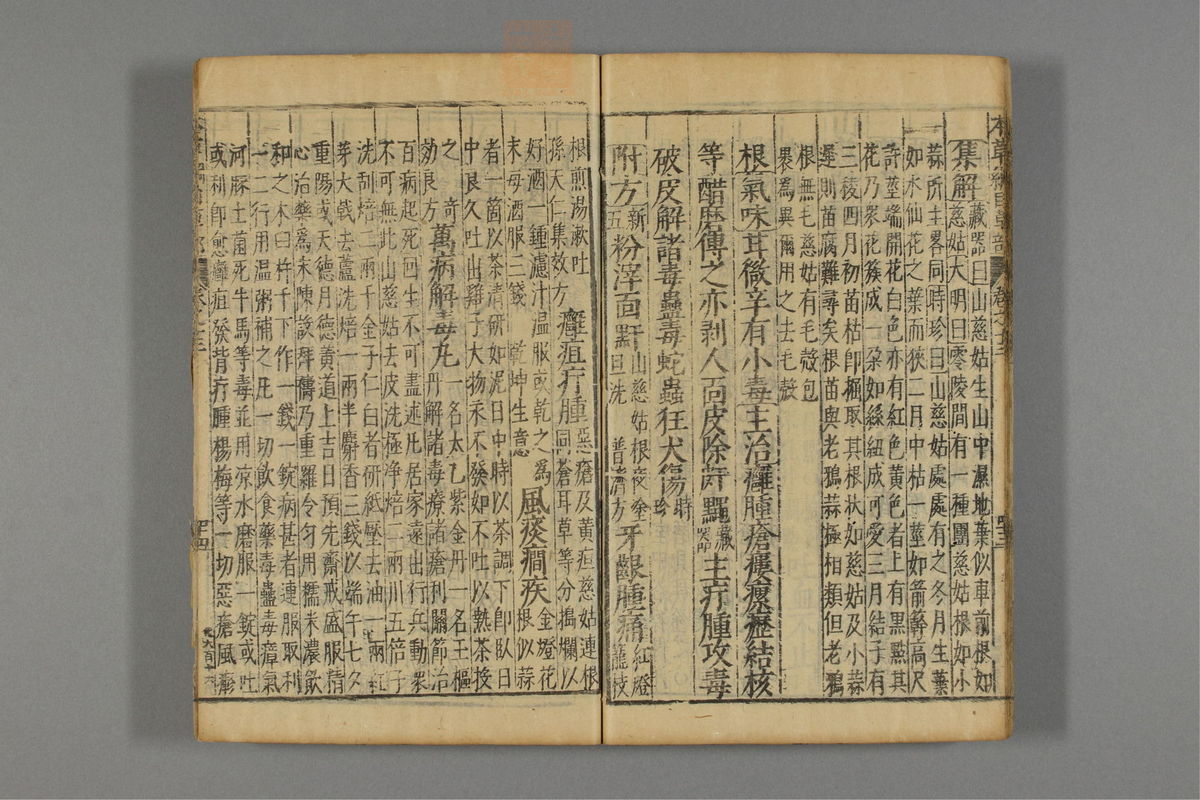 本草綱目草部 卷之十三 四十三
集解藏器曰山慈姑生山中濕地葉似車前根如
慈姑大明曰零陵間有一種團慈姑根如小
蒜所主畧同時珍曰山慈姑處處有之冬月生葉
如水仙花之葉而狹二月中枯一莖如箭簳高尺
許莖端開花白色亦有紅色黃色者上有黑點其
花乃衆花簇成一朵如絲紐成可愛三月結子有
三稜四月初苗枯即掘取其根狀如慈姑及小蒜
遲則苗腐難尋矣根苗與老鴉蒜極相類但老鴉
根無毛慈姑有毛殼包
褁爲異爾用之去毛殼
根氣味甘微辛有小毒主治癰腫瘡瘻瘰癧結核
等醋磨傅之亦剥人面皮除皯䵳藏器主疔腫攻毒
破皮解諸毒蠱毒蛇蟲狂犬傷時珍
附方新五粉滓面皯山慈姑根夜塗旦洗 普濟方牙齦腫痛紅燈籠枝
根煎湯漱吐孫天仁集效方癰疽疔腫惡瘡及黃疸慈姑連根同蒼耳草等分搗爛以
好酒一鍾濾汁温服或乾之爲末每酒服三錢 乾坤生意風痰癎疾金燈花根似蒜
者一箇以茶清研如泥日中時以茶調下即臥日
中良久吐出雞子大物永不發如不吐以熱茶投
之 竒效良方萬病解毒丸一名太乙紫金丹一名玉樞丹解諸毒療諸瘡利關節治
百病起死回生不可盡述凡居家遠出行兵動衆
不可無此山慈姑去皮洗極净焙二兩川五倍子
洗刮焙二兩千金子仁白者研紙壓去油一兩紅
芽大戟去蘆洗焙一兩半麝香三錢以端午七夕
重陽或天德月德黃道上吉日預先齋戒盛服精
心治藥爲末陳設拜禱乃重羅令匀用糯米濃飲
和之木臼杵千下作一錢一錠病甚者連服取利
一二行用温粥補之凡一切飲食藥毒蠱毒瘴氣
河豚土菌死牛馬等毒並用凉水磨服一錠或吐
或利即愈癰疽發背疔腫楊梅等一切惡瘡風